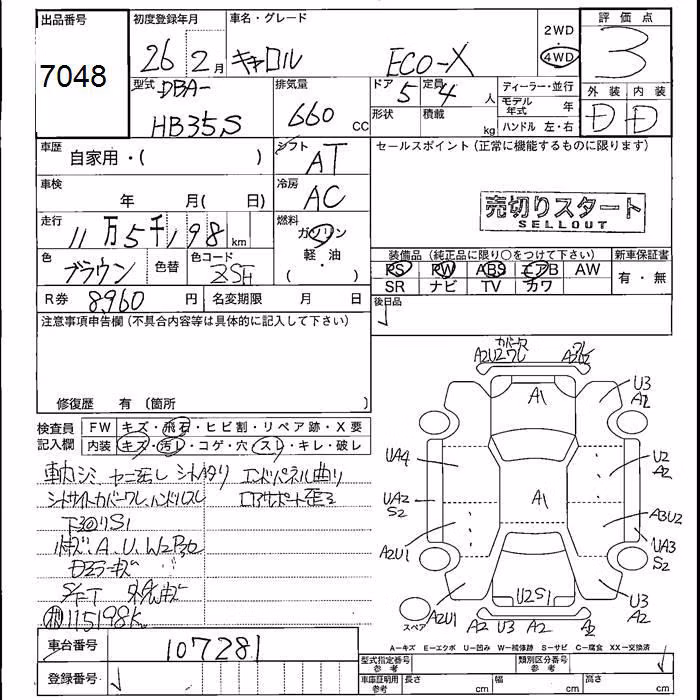 出品番号 初度登録年月 車名・グレード 2WD 評価点
7048 26 2月 キャロル ECO-X ・ 4WD 3
型式 DBA- 排気量 ドア 5 定員 4 人 ティーラー・並行 外装 内装
HB35S 660 CC 形状 積載 kg モデル年式 年 D D
ハンドル 左・右
車歴 自家用・( ) シフト AT セールスポイント (正常に機能するものに限ります)
車検 年 月( 日) 冷房 AC
売切りスタート
SELLOUT
走行 11万5千198km 燃料 ガソリン
軽・油
( )
色 ブラウン 色替 色コード ZSH
装備品 (純正品に限り〇をつけて下さい) 新車保証書
PS PW ABS エアB AW 有・無
SR ナビ TV カワ
R券 8,960 円 名変期限 月 日 後日品
注意事項申告欄 (不具合内容等は具体的に記入して下さい)
修復歴 有 (箇所 )
検査員 FW キズ・飛石・ヒビ割・リペア跡・X要
記入欄 内装 キズ・汚レ・コゲ・穴・スレ・キレ・破レ
エンドパネル曲り
下回りS1
A、U、W2P30
S/FT
115198K
A2U2ワレ
A1
U3
A2
UA4
U2
A2
UA2
S2
A1
A3U2
A2U1
UA3
S2
U2S1
U3
A2
スペア A2U1 A2 U3 A2
車台番号 107281
A−キズ E−エクボ U−凹み W−補修跡 S−サビ C−腐食 XX−交換済
登録番号
型式指定番号 参考 類別区分番号 参考
車庫証明用 参考 長さ cm 幅 cm 高さ cm